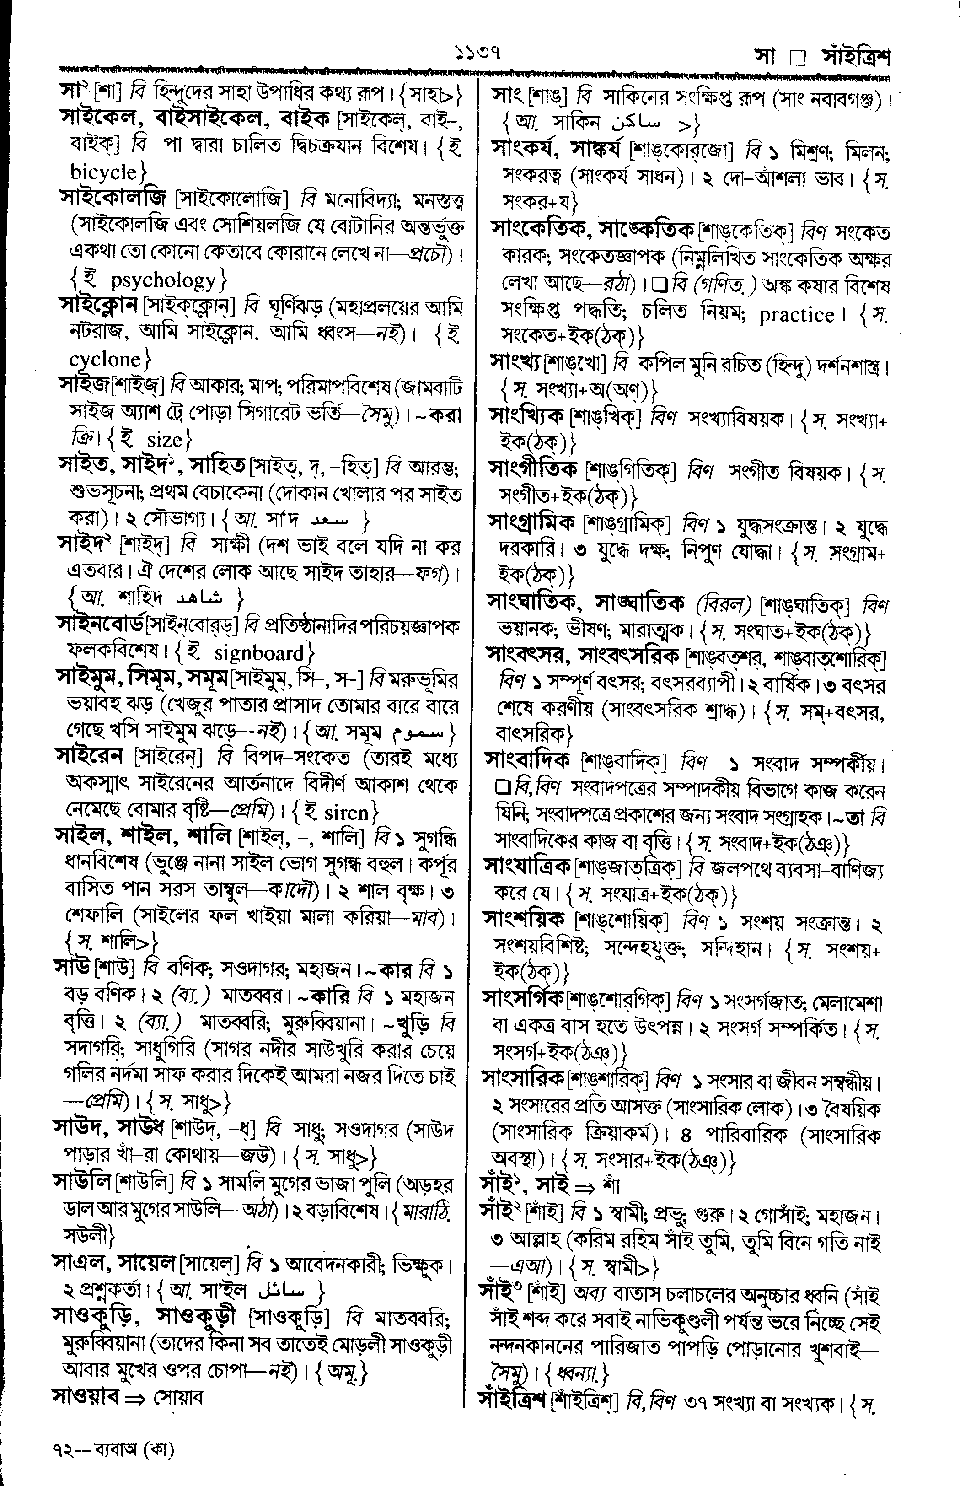 ১১৩৭
সা □ সাঁইত্রিশ
সা² [শা] বি হিন্দুদের সাহা উপাধির কথ্য রূপ। {সাহা>}
সাইকেল, বাইসাইকেল, বাইক [সাইকেল্, বাই–,
বাইক্] বি পা দ্বারা চালিত দ্বিচক্রযান বিশেষ। {ই
bicycle}
সাইকোলজি [সাইকোলোজি] বি মনোবিদ্যা; মনস্তত্ত্ব
(সাইকোলজি এবং সোশিয়লজি যে বোটানির অন্তর্ভুক্ত
একথা তো কোনো কেতাবে কোরানে লেখে না—প্রচৌ)।
{ই psychology}
সাইক্লোন [সাইক্‌ক্লোন্] বি ঘূর্ণিঝড় (মহাপ্রলয়ের আমি
নটরাজ, আমি সাইক্লোন, আমি ধ্বংস—নই)। {ই
cyclone}
সাইজ [শাইজ্] বি আকার; মাপ; পরিমাপবিশেষ (জামবাটি
সাইজ অ্যাশ ট্রে পোড়া সিগারেট ভর্তি—সৈমু)। ~করা
ক্রি। {ই size}
সাইত, সাইদ¹, সাহিত [সাইত্, দ্, –হিত্] বি আরম্ভ;
শুভসূচনা; প্রথম বেচাকেনা (দোকান খোলার পর সাইত
করা)। ২ সৌভাগ্য। {আ. সা'দ سعد }
সাইদ² [শাইদ্] বি সাক্ষী (দশ ভাই বলে যদি না কর
এতবার। ঐ দেশের লোক আছে সাইদ তাহার—ফগ)।
{আ. শাহিদ شاهد }
সাইনবোর্ড [সাইন্‌বোর্‌ড্] বি প্রতিষ্ঠানাদির পরিচয়জ্ঞাপক
ফলকবিশেষ। {ই signboard}
সাইমুম, সিমূম, সমূম [সাইমুম্, সি–, স–] বি মরুভূমির
ভয়াবহ ঝড় (খেজুর পাতার প্রাসাদ তোমার বারে বারে
গেছে খসি সাইমুম ঝড়ে—নই)। {আ. সমূম سموم}
সাইরেন [সাইরেন্] বি বিপদ-সংকেত (তারই মধ্যে
অকস্মাৎ সাইরেনের আর্তনাদে বিদীর্ণ আকাশ থেকে
নেমেছে বোমার বৃষ্টি—প্রেমি)। {ই siren}
সাইল, শাইল, শালি [শাইল্, –, শালি] বি ১ সুগন্ধি
ধানবিশেষ (ভুঞ্জে নানা সাইল ভোগ সুগন্ধ বহুল। কর্পূর
বাসিত পান সরস তাম্বুল—কাদৌ)। ২ শাল বৃক্ষ। ৩
শেফালি (সাইলের ফল খাইয়া মালা করিয়া—মাব)।
{স. শালি>}
সাউ [শাউ] বি বণিক; সওদাগর; মহাজন। ~কার বি ১
বড় বণিক। ২ (ব্য.) মাতব্বর। ~কারি বি ১ মহাজন
বৃত্তি। ২ (ব্যা.) মাতব্বরি; মুরুব্বিয়ানা। ~খুড়ি বি
সদাগরি; সাধুগিরি (সাগর নদীর সাউখুরি করার চেয়ে
গলির নর্দমা সাফ করার দিকেই আমরা নজর দিতে চাই
—প্রেমি)। {স. সাধু>}
সাউদ, সাউধ [শাউদ্, –ধ্] বি সাধু; সওদাগর (সাউদ
পাড়ার খাঁ-রা কোথায়—জউ)। {স. সাধু>}
সাউলি [শাউলি] বি ১ সামলি মুগের ভাজা পুলি (অড়হর
ডাল আর মুগের সাউলি—অঠা)। ২ বড়াবিশেষ। {মারাঠি.
সউলী}
সাএল, সায়েল [সায়েল্] বি ১ আবেদনকারী; ভিক্ষুক।
২ প্রশ্নকর্তা। {আ. সা'ইল سائل }
সাওকুড়ি, সাওকুড়ী [সাওকুড়ি] বি মাতব্বরি;
মুরুব্বিয়ানা (তাদের কিনা সব তাতেই মোড়লী সাওকুড়ী
আবার মুখের ওপর চোপা—নই)। {অমূ.}
সাওয়াব ⇒ সোয়াব
৭২—ব্যবাঅ (কা)
সাং [শাঙ] বি সাকিনের সংক্ষিপ্ত রূপ (সাং নবাবগঞ্জ)।
{আ. সাকিন ساكن >}
সাংকর্য, সাঙ্কর্য [শাঙ্‌কোর্‌জো] বি ১ মিশ্রণ; মিলন;
সংকরত্ব (সাংকর্য সাধন)। ২ দো-আঁশলা ভাব। {স.
সংকর+য}
সাংকেতিক, সাঙ্কেতিক [শাঙ্‌কেতিক্] বিণ সংকেত
কারক; সংকেতজ্ঞাপক (নিম্নলিখিত সাংকেতিক অক্ষর
লেখা আছে—রঠা)। □ বি (গণিত.) অঙ্ক কষার বিশেষ
সংক্ষিপ্ত পদ্ধতি; চলিত নিয়ম; practice। {স.
সংকেত+ইক(ঠক্)}
সাংখ্য [শাঙ্‌খো] বি কপিল মুনি রচিত (হিন্দু) দর্শনশাস্ত্র।
{স. সংখ্যা+অ(অণ্)}
সাংখ্যিক [শাঙ্‌খিক্] বিণ সংখ্যাবিষয়ক। {স. সংখ্যা+
ইক(ঠক্)}
সাংগীতিক [শাঙ্‌গিতিক্] বিণ সংগীত বিষয়ক। {স.
সংগীত+ইক(ঠক্)}
সাংগ্রামিক [শাঙ্‌গ্রামিক্] বিণ ১ যুদ্ধসংক্রান্ত। ২ যুদ্ধে
দরকারি। ৩ যুদ্ধে দক্ষ; নিপুণ যোদ্ধা। {স. সংগ্রাম+
ইক(ঠক্)}
সাংঘাতিক, সাঙ্ঘাতিক (বিরল) [শাঙ্‌ঘাতিক্] বিণ
ভয়ানক; ভীষণ; মারাত্মক। {স. সংঘাত+ইক(ঠক্)}
সাংবৎসর, সাংবৎসরিক [শাঙ্‌বত্‌শর্, শাঙ্‌বাত্‌শোরিক্]
বিণ ১ সম্পূর্ণ বৎসর; বৎসরব্যাপী। ২ বার্ষিক। ৩ বৎসর
শেষে করণীয় (সাংবৎসরিক শ্রাদ্ধ)। {স. সম্+বৎসর,
বাৎসরিক}
সাংবাদিক [শাঙ্‌বাদিক্] বিণ ১ সংবাদ সম্পর্কীয়।
□ বি, বিণ সংবাদপত্রের সম্পাদকীয় বিভাগে কাজ করেন
যিনি; সংবাদপত্রে প্রকাশের জন্য সংবাদ সংগ্রাহক। ~তা বি
সাংবাদিকের কাজ বা বৃত্তি। {স. সংবাদ+ইক(ঠঞ্)}
সাংযাত্রিক [শাঙ্‌জাত্‌ত্রিক্] বি জলপথে ব্যবসা-বাণিজ্য
করে যে। {স. সংযাত্র+ইক(ঠক্)}
সাংশয়িক [শাঙ্‌শোয়িক্] বিণ ১ সংশয় সংক্রান্ত। ২
সংশয়বিশিষ্ট; সন্দেহযুক্ত; সন্দিহান। {স. সংশয়+
ইক(ঠক্)}
সাংসর্গিক [শাঙ্‌শোর্‌গিক্] বিণ ১ সংসর্গজাত; মেলামেশা
বা একত্র বাস হতে উৎপন্ন। ২ সংসর্গ সম্পর্কিত। {স.
সংসর্গ+ইক(ঠঞ্)}
সাংসারিক [শাঙ্‌শারিক্] বিণ ১ সংসার বা জীবন সম্বন্ধীয়।
২ সংসারের প্রতি আসক্ত (সাংসারিক লোক)। ৩ বৈষয়িক
(সাংসারিক ক্রিয়াকর্ম)। ৪ পারিবারিক (সাংসারিক
অবস্থা)। {স. সংসার+ইক(ঠঞ্)}
সাঁই¹, সাই ⇒ শাঁ
সাঁই² [শাঁই] বি ১ স্বামী; প্রভু; গুরু। ২ গোসাঁই; মহাজন।
৩ আল্লাহ (করিম রহিম সাঁই তুমি, তুমি বিনে গতি নাই
—এআ)। {স. স্বামী>}
সাঁই³ [শাঁই] অব্য বাতাস চলাচলের অনুচ্চার ধ্বনি (সাঁই
সাঁই শব্দ করে সবাই নাভিকুণ্ডলী পর্যন্ত ভরে নিচ্ছে সেই
নন্দনকাননের পারিজাত পাপড়ি পোড়ানোর খুশবাই—
সৈমু)। {ধ্বন্যা.}
সাঁইত্রিশ [শাঁইত্রিশ্] বি, বিণ ৩৭ সংখ্যা বা সংখ্যক। {স.